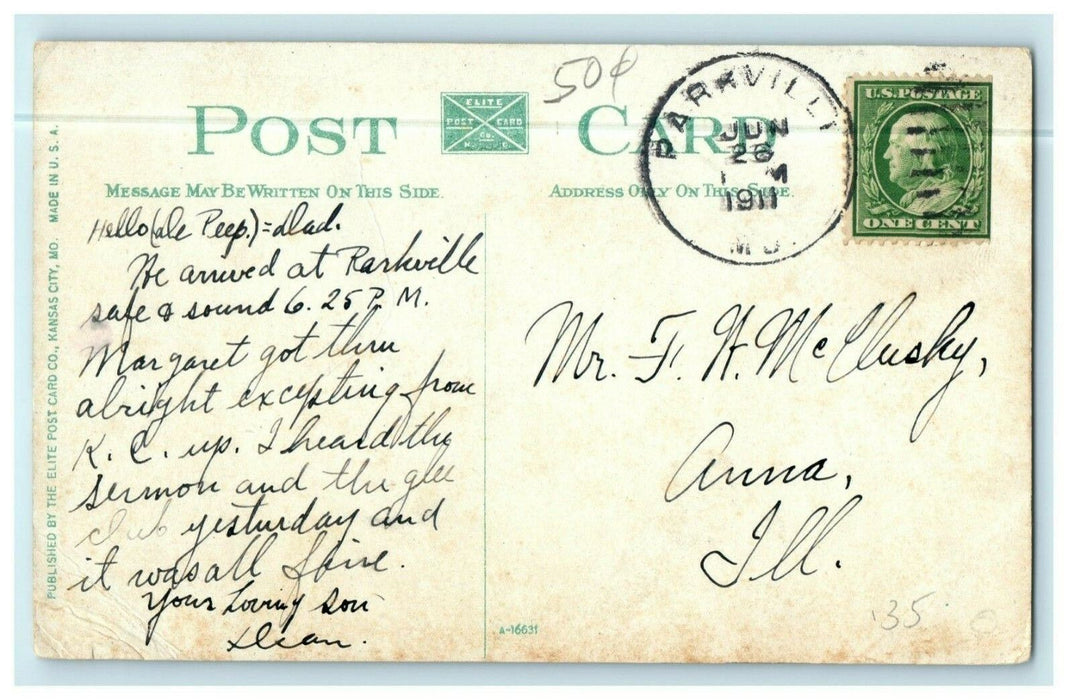 50¢
POST CARD
ELITE
POST CARD
CO.
PARKVILLE
JUN
26
M
1911
MO.
U.S. POSTAGE
ONE CENT
MESSAGE MAY BE WRITTEN ON THIS SIDE.
ADDRESS ONLY ON THIS SIDE.
PUBLISHED BY THE ELITE POST CARD CO., KANSAS CITY, MO. MADE IN U. S. A.
Hello (de Peep.) = Dad.
We arrived at Parkville
safe & sound 6. 25 P. M.
Margaret got thru
alright excepting from
K. C. up. I heard the
sermon and the glee
club yesturday and
it was all fine.
Your Loving Son
Dean.
Mr. F. H. McClusky,
Anna,
Ill.
A-16631
35